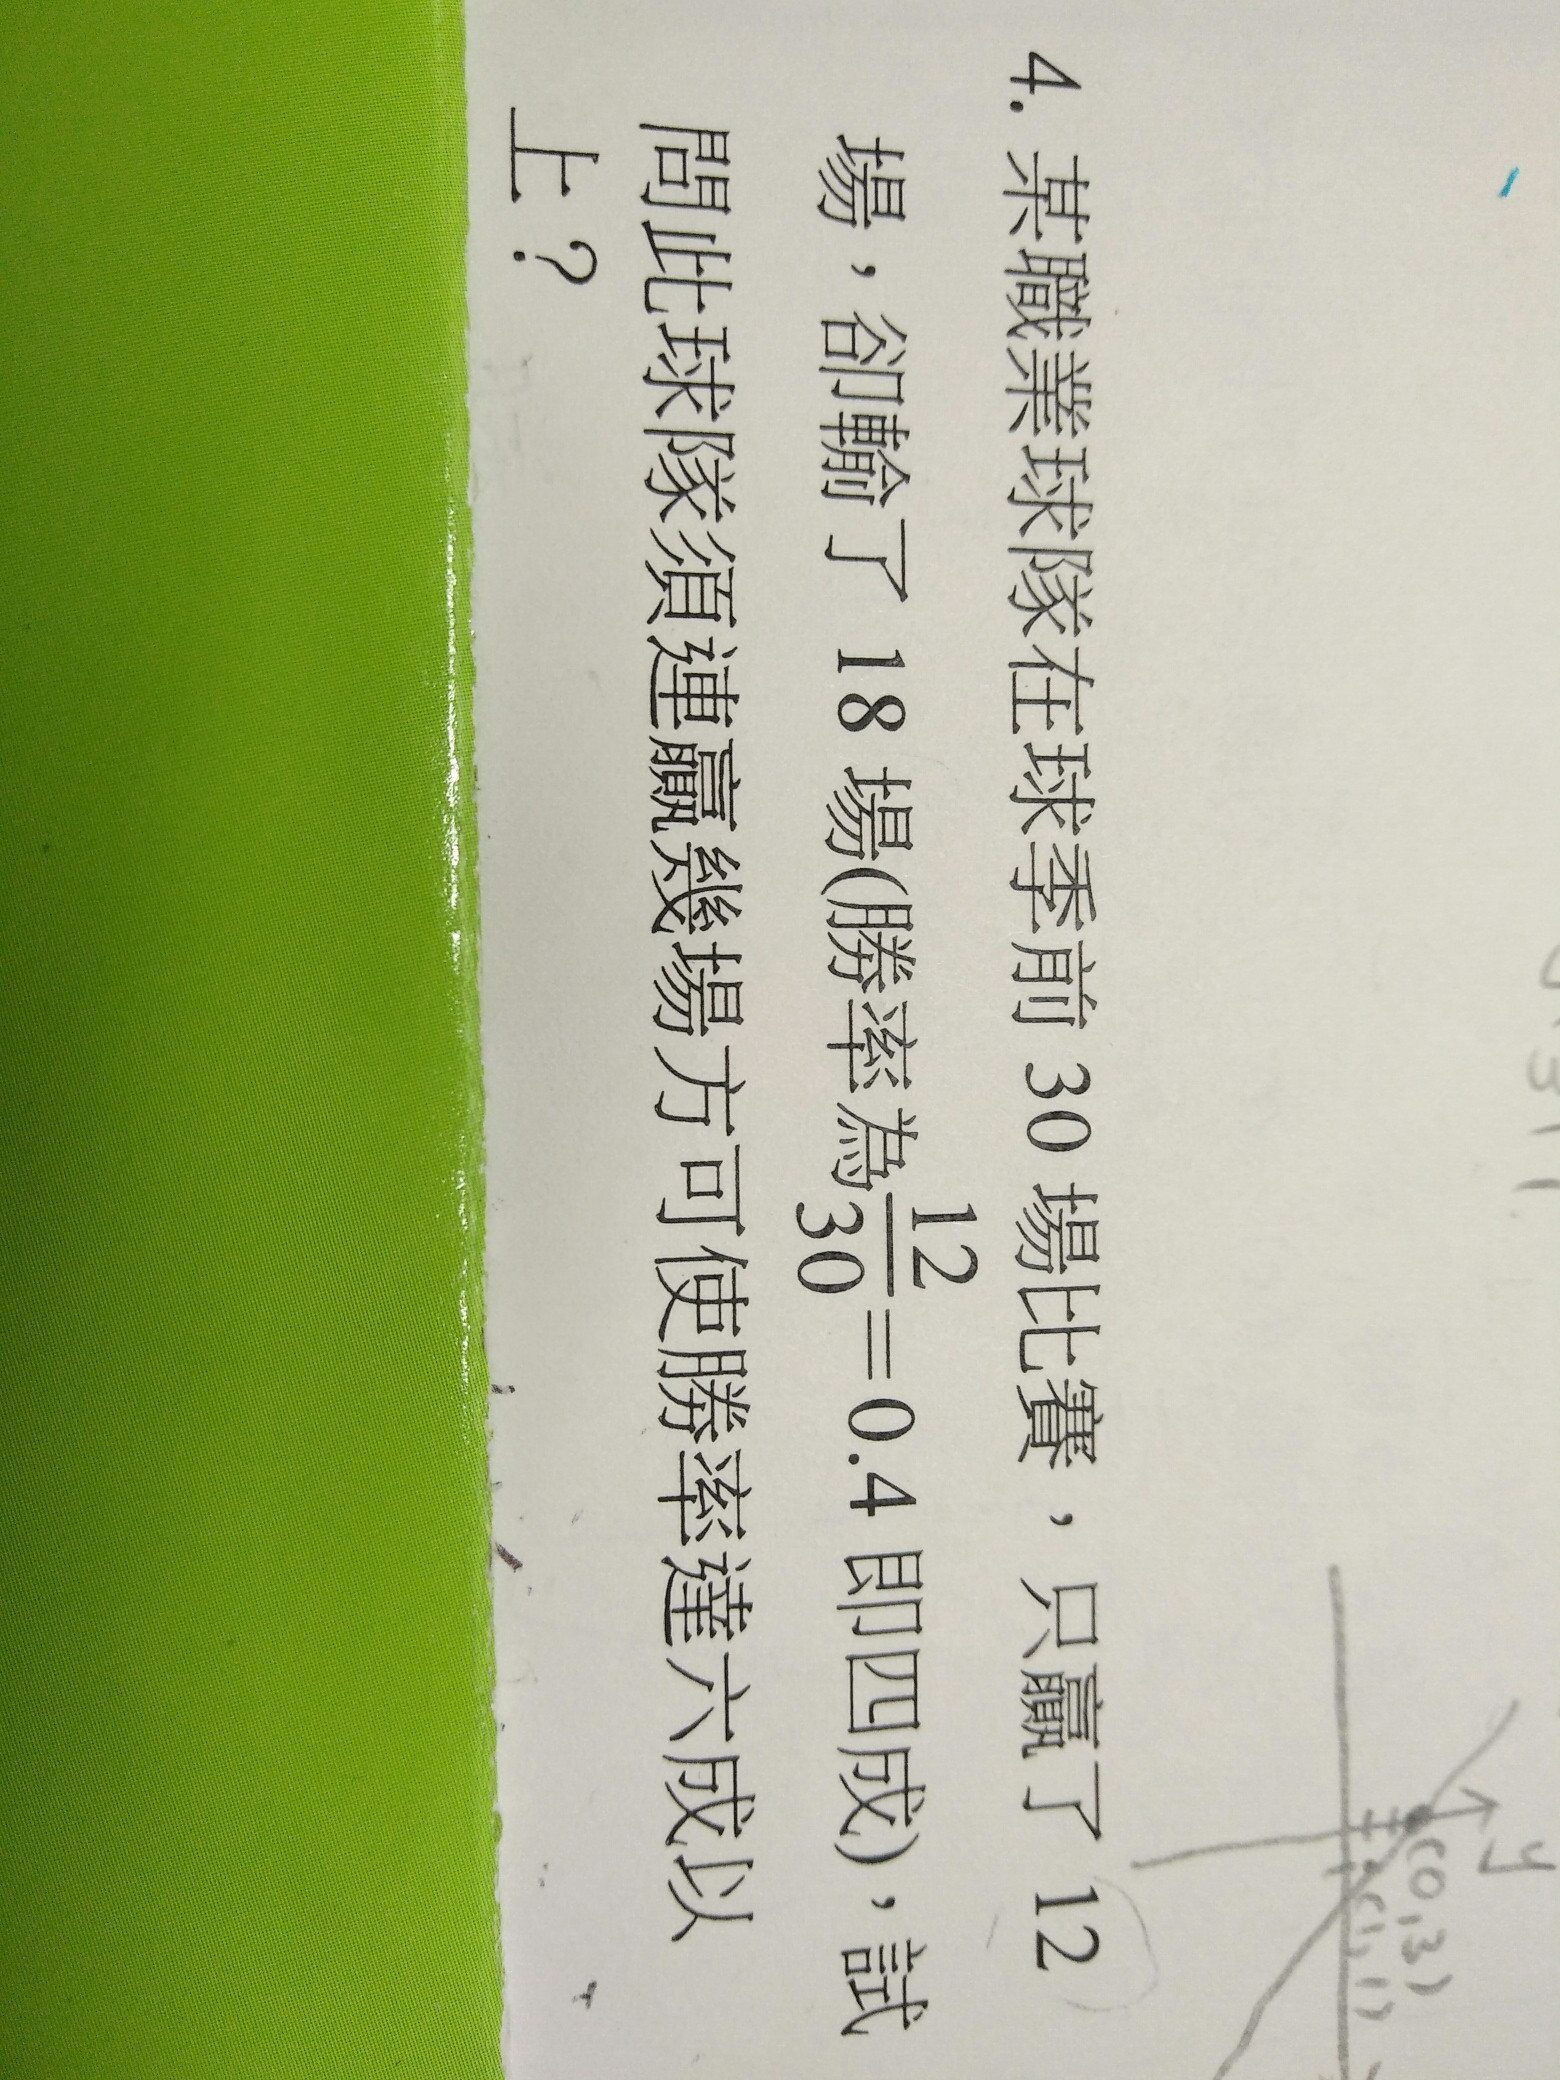 4. 某職業球隊在球季前 30 場比賽，只贏了 12
場，卻輸了 18 場(勝率為12/30=0.4 即四成)，試
問此球隊須連贏幾場方可使勝率達六成以
上？
y
(0,3)
(1,1)